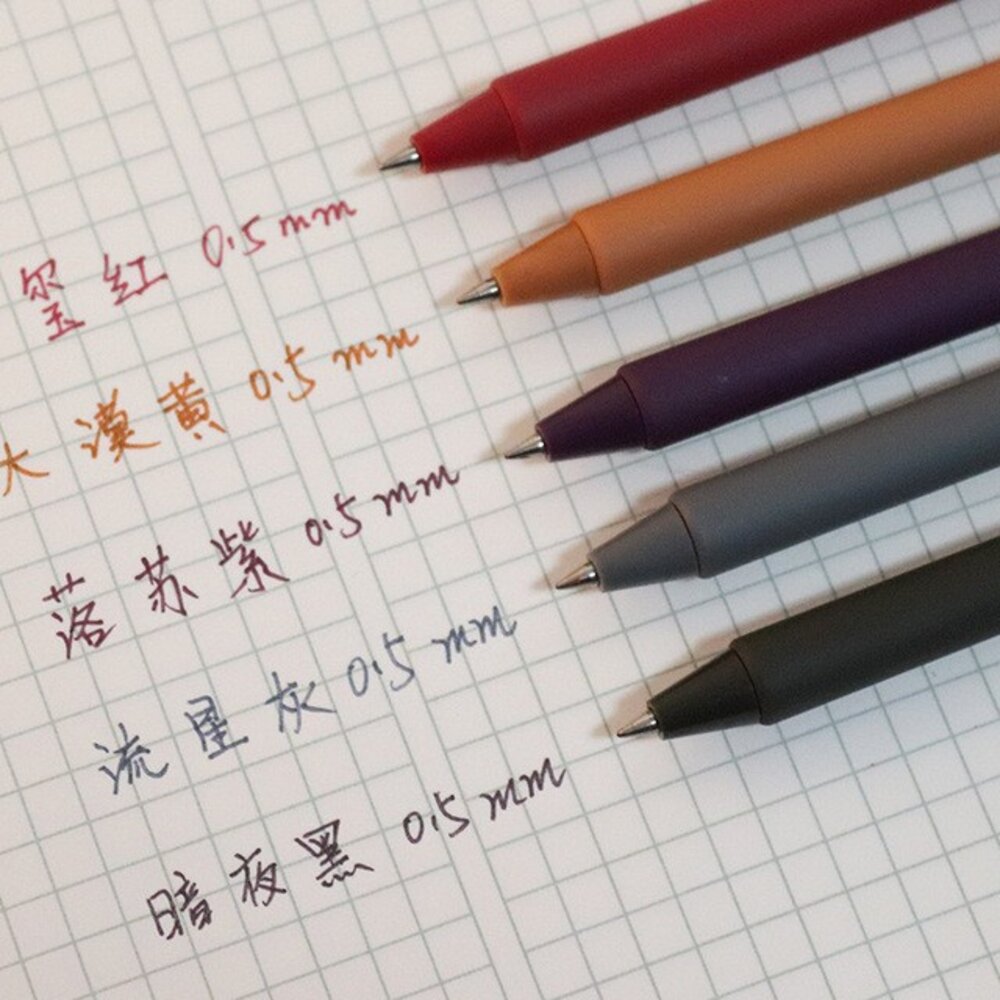 玺红 0.5mm
大漠黄 0.5mm
落苏紫 0.5mm
流星灰 0.5mm
暗夜黑 0.5mm